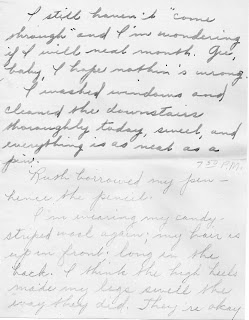 I still haven't "come
through" and I'm wondering
if I will next month. Gee,
baby, I hope nothin's wrong.
I washed windows and
cleaned the downstairs
thoroughly today, sweet, and
everything is as neat as a
pin.
7:30 P.M.
Ruth borrowed my pen –
hence the pencil.
I'm wearing my candy-
striped wool again; my hair is
up in front; long in the
back. I think the high heels
made my legs swell the
way they did. They're okay